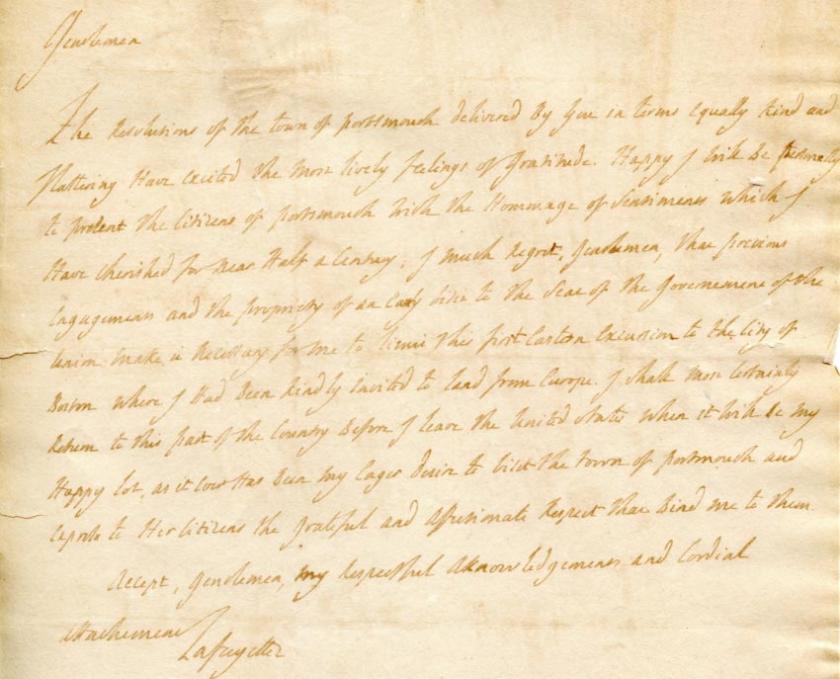 Gentlemen
The Resolutions of the town of portsmouth delivered By You in terms equally Kind and
flattering Have excited the most lively feelings of Gratitude. Happy I will Be personally
to present the Citizens of portsmouth with the Hommage of Sentiments which I
Have cherished for near Half a Century. I much Regret, Gentlemen, that previous
Engagements and the propriety of an Early visit to the Seat of the Governement of the
Union make it Necessary for me to limit this first Eastern Excursion to the City of
Boston where I Had Been Kindly invited to land from Europe. I shall most Certainly
Return to this part of the Country Before I leave the United States when it will Be my
Happy lot, as it ever Has Been my Eager Desire to visit the town of portsmouth and
express to Her Citizens the grateful and affectionate Respect that Bind me to them
Accept, Gentlemen, my Respectful Aknowledgements and Cordial
attachement
Lafayette